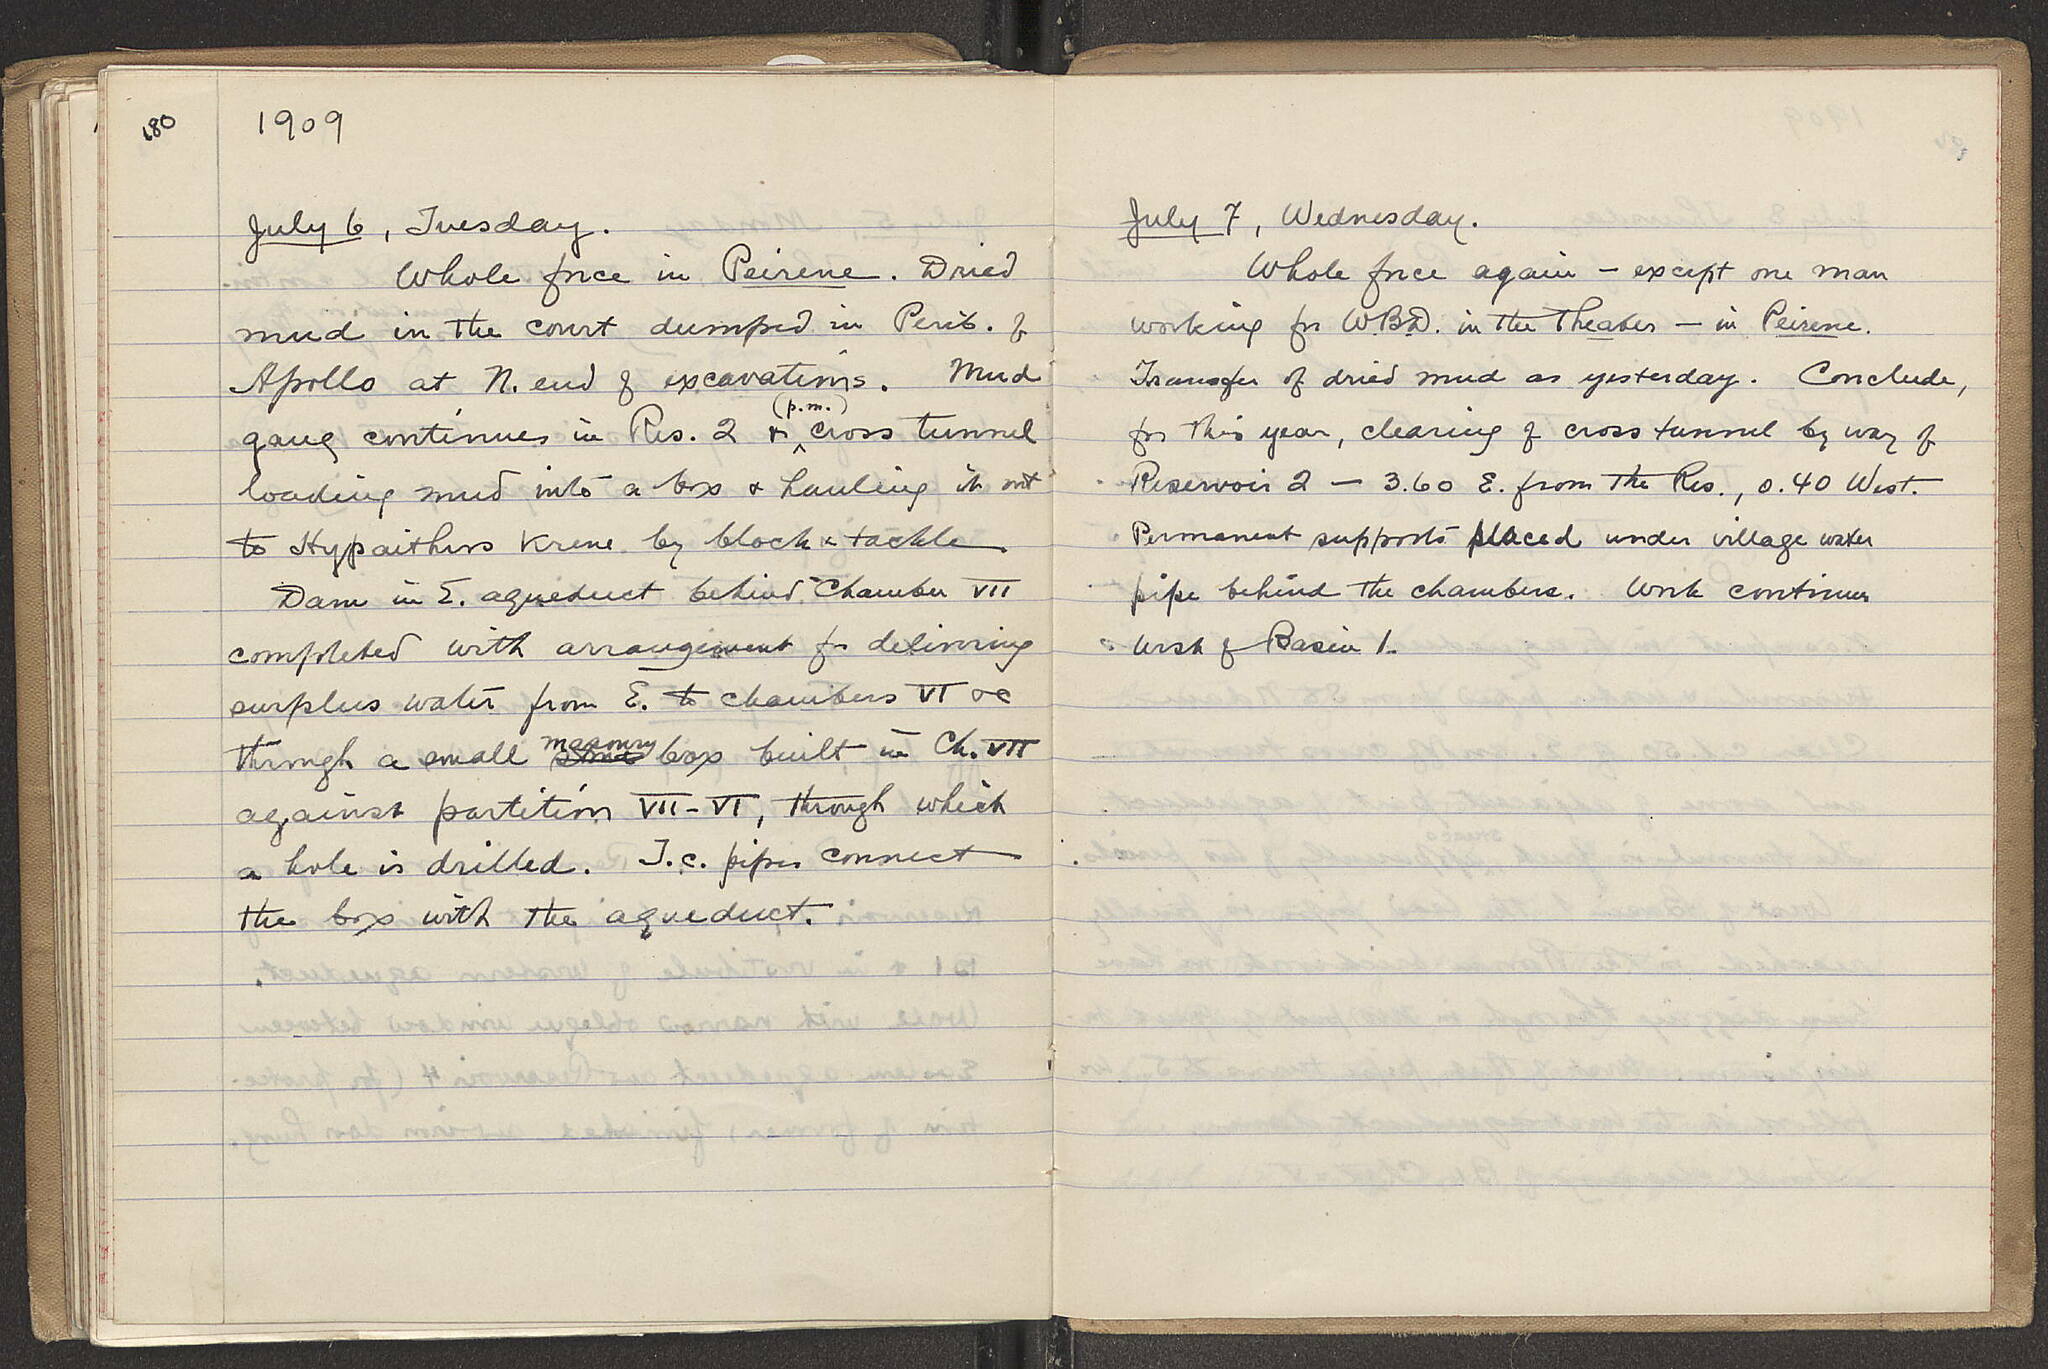 180
1909
July 6, Tuesday.
Whole force in Peirene. Dried
mud in the court dumped in Perib. of
Apollo at N. end of excavations. Mud
(p.m.)
gang continues in Res. 2 & cross tunnel
loading mud into a box & hauling it out
to Hypaithros Krene by block & tackle.
Dam in E. aqueduct behind Chamber VII
completed with arrangement for delivering
surplus water from E. to chambers VI &c
through a small stone masonry box built in Ch. VII
against partition VII-VI, through which
a hole is drilled. T.c. pipes connect
the box with the aqueduct.
July 7, Wednesday.
Whole force again – except one man
working for WBD. in the Theater – in Peirene.
Transfer of dried mud as yesterday. Conclude,
for this year, clearing of cross tunnel by way of
Reservoir 2 – 3.60 E. from the Res., 0.40 West.
Permanent supports placed under village water
pipe behind the chambers. Work continues
West of Basin 1.